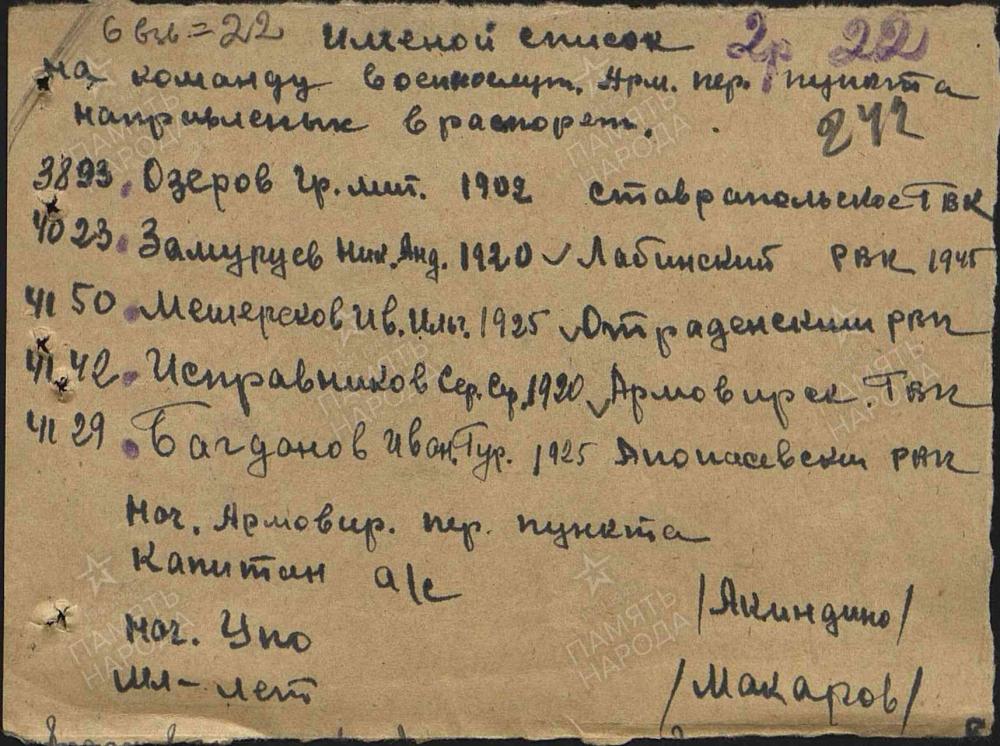 6 взв = 22 Именой список 2р 22
на команду военнослуж. Арм. пер. пункта
направленых в распореж. 242
3893. Озеров Гр. мит. 1902 Ставрапольское ГВК
4023. Замуруев Ник. Анд. 1920 Лабинский РВК 1945
4150. Мещерсков Ив. Ильч. 1925 Отраденским РВК
4142. Исправников Сер. Сер. 1920 Армовирск. ГВК
4129. Багданов Иван. Гур. 1925 РВК
Нач. Армовир. пер. пункта
Капитан а/с /Акиндино/
Нач. Упо
мл-лет /Макаров/
ПАМЯТЬ НАРОДА